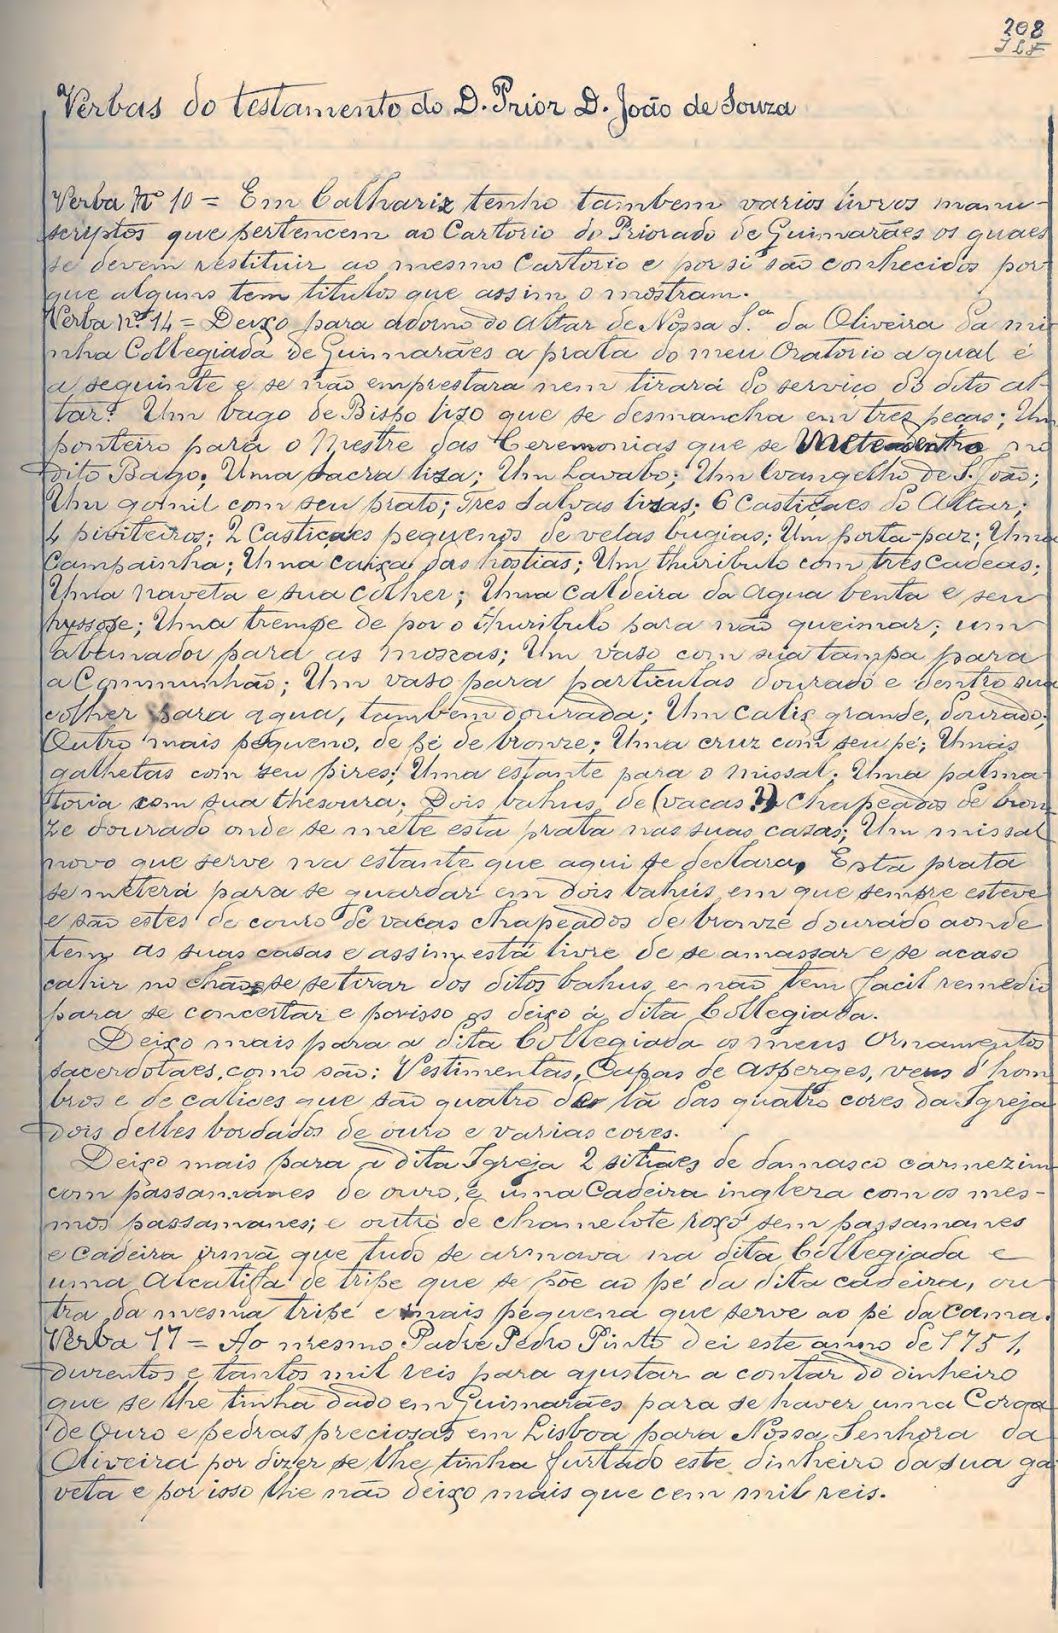 208
Verbas do testamento do D. Prior D. João de Souza
Verba Nº 10 = Em Calhariz tenho tambem varios livros manu-
scriptos que pertencem ao Cartorio do Priorado de Guimarães os quaes
se devem restituir ao mesmo Cartorio e por si são conhecidos por
que alguns tem titulos que assim o mostram.
Verba nº 14 = Deixo para adorno do Altar de Nossa S.ª da Oliveira da mi-
nha Collegiada de Guimarães a prata do meu Oratorio a qual é
a seguinte e se não emprestara nem tirará do serviço do dito al-
tar: Um bago de Bispo lizo que se desmancha em trez peças; Um
ponteiro para o Mestre das Ceremonias que se mete dentro no
dito Bago; Uma sacra liza; Um Lavabo; Um Evangelho de S. João;
Um gomil com seu prato; Tres salvas lizas; 6 Castiçaes do Altar;
4 piviteiros; 2 Castiçaes pequenos de velas bugias; Um porta-paz; Uma
Campainha; Uma caixa das hostias; Um thuribulo com tres cadeas;
Uma naveta e sua colher; Uma Caldeira da agua benta e seu
hyssope; Uma trempe de por o thuribulo para não queimar; um
abanador para as moscas; Um vaso com sua tampa para
a Communhão; Um vaso para particulas dourado e dentro sua
colher para agua, tambem dourada; Um calix grande, dourado;
Outro mais pequeno, de pé de bronze; Uma cruz com seu pé; Umas
galhetas com seu pires; Uma estante para o missal; Uma palma-
toria com sua thesoura; Dois bahus de (vacas?) chapeados de bron-
ze dourado onde se mete esta prata nas suas casas; Um missal
novo que serve na estante que aqui se declara. Esta prata
se meterá para se guardar em dois bahús em que sempre esteve
e são estes de couro de vacas chapeados de bronze dourado aonde
tem as suas casas e assim está livre de se amassar e se acaso
cahir no chão se se tirar dos ditos bahus e não tem facil remedio
para se concertar e porisso os deixo á dita Collegiada.
Deixo mais para a dita Collegiada os meus Ornamentos
sacerdotaes, como são: Vestimentas, Capas de Asperges, veus d'hom
bros e de calices que são quatro de lã das quatro cores da Igreja
dois delles bordados de ouro e varias cores.
Deixo mais para a dita Igreja 2 sitiaes de damasco carmezim
com passamanes de ouro, e uma Cadeira ingleza com os mes-
mos passamanes; e outro de chamelote roxo sem passamanes
e cadeira irmã que tudo se armava na dita Collegiada e
uma Alcatifa de tripe que se põe ao pé da dita cadeira, ou
tra da mesma tripe e mais pequena que serve ao pé da cama.
Verba 17 = Ao mesmo Padre Pedro Pinto dei este anno de 1751,
durentos e tantos mil reis para ajustar a contar do dinheiro
que se lhe tinha dado em Guimarães para se haver uma Coroa
de Ouro e pedras preciosas em Lisboa para Nossa Senhora da
Oliveira por dizer se lhe tinha furtado este dinheiro da sua ga
veta e por isso lhe não deixo mais que cem mil reis.